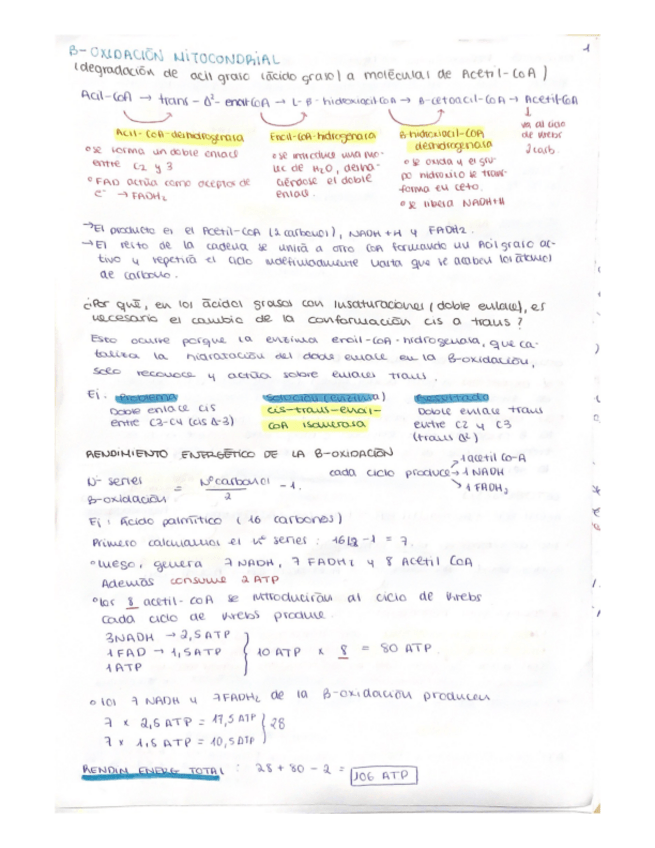 1
B-OXIDACIÓN MITOCONDRIAL
(degradación de acil graso (ácido graso) a moléculas de Acetil-CoA)
Acil-CoA → trans-Δ²-enoil CoA → L-B-hidroxiacil CoA → B-cetoacil-CoA → Acetil CoA
Acil-CoA-deshidrogenasa
Enoil-CoA-hidrogenasa
B-hidroxiacil-CoA
deshidrogenasa
↓
va al ciclo
de Krebs
2 carb.
° se forma un doble enlace
entre C2 y 3
° FAD actúa como aceptor de
e⁻ → FADH₂
° se introduce una mo-
léc de H₂O, desha-
ciéndose el doble
enlace.
° se oxida y el gru-
po hidroxilo se trans-
forma en ceto.
° se libera NADH+H
→ El producto es el Acetil-CoA (2 carbonos), NADH+H y FADH2.
→ El resto de la cadena se unirá a otro CoA formando un Acil graso ac-
tivo y repetirá el ciclo indefinidamente hasta que se acaben los átomos
de carbono.
¿Por qué, en los ácidos grasos con insaturaciones (doble enlace), es
necesario el cambio de la conformación cis a trans?
Esto ocurre porque la enzima enoil-CoA-hidrogenasa, que ca-
taliza la hidratación del doble enlace en la B-oxidación,
solo reconoce y actúa sobre enlaces trans.
Ej. Problema
Solución (enzima)
Resultado
Doble enlace cis
entre C3-C4 (cis Δ-3)
cis-trans-enoil-
CoA isomerasa
Doble enlace trans
entre C2 y C3
(trans Δ²)
RENDIMIENTO ENERGÉTICO DE LA B-OXIDACIÓN
Nº series
B-oxidación = Nº carbonos / 2 - 1.
cada ciclo produce → 1 acetil Co-A
→ 1 NADH
→ 1 FADH₂
Ej: Ácido palmítico (16 carbonos)
Primero calculamos el nº series: 16/2 - 1 = 7.
° luego, genera 7 NADH, 7 FADH₂ y 8 Acetil CoA
Además consume 2 ATP
° los 8 acetil-CoA se introducirán al ciclo de Krebs
cada ciclo de Krebs produce.
3NADH → 2,5 ATP
1 FAD → 1,5 ATP } 10 ATP x 8 = 80 ATP
1 ATP
° los 7 NADH y 7 FADH₂ de la B-oxidación producen
7 x 2,5 ATP = 17,5 ATP } 28
7 x 1,5 ATP = 10,5 ATP
RENDIM ENERG TOTAL: 28 + 80 - 2 = 106 ATP